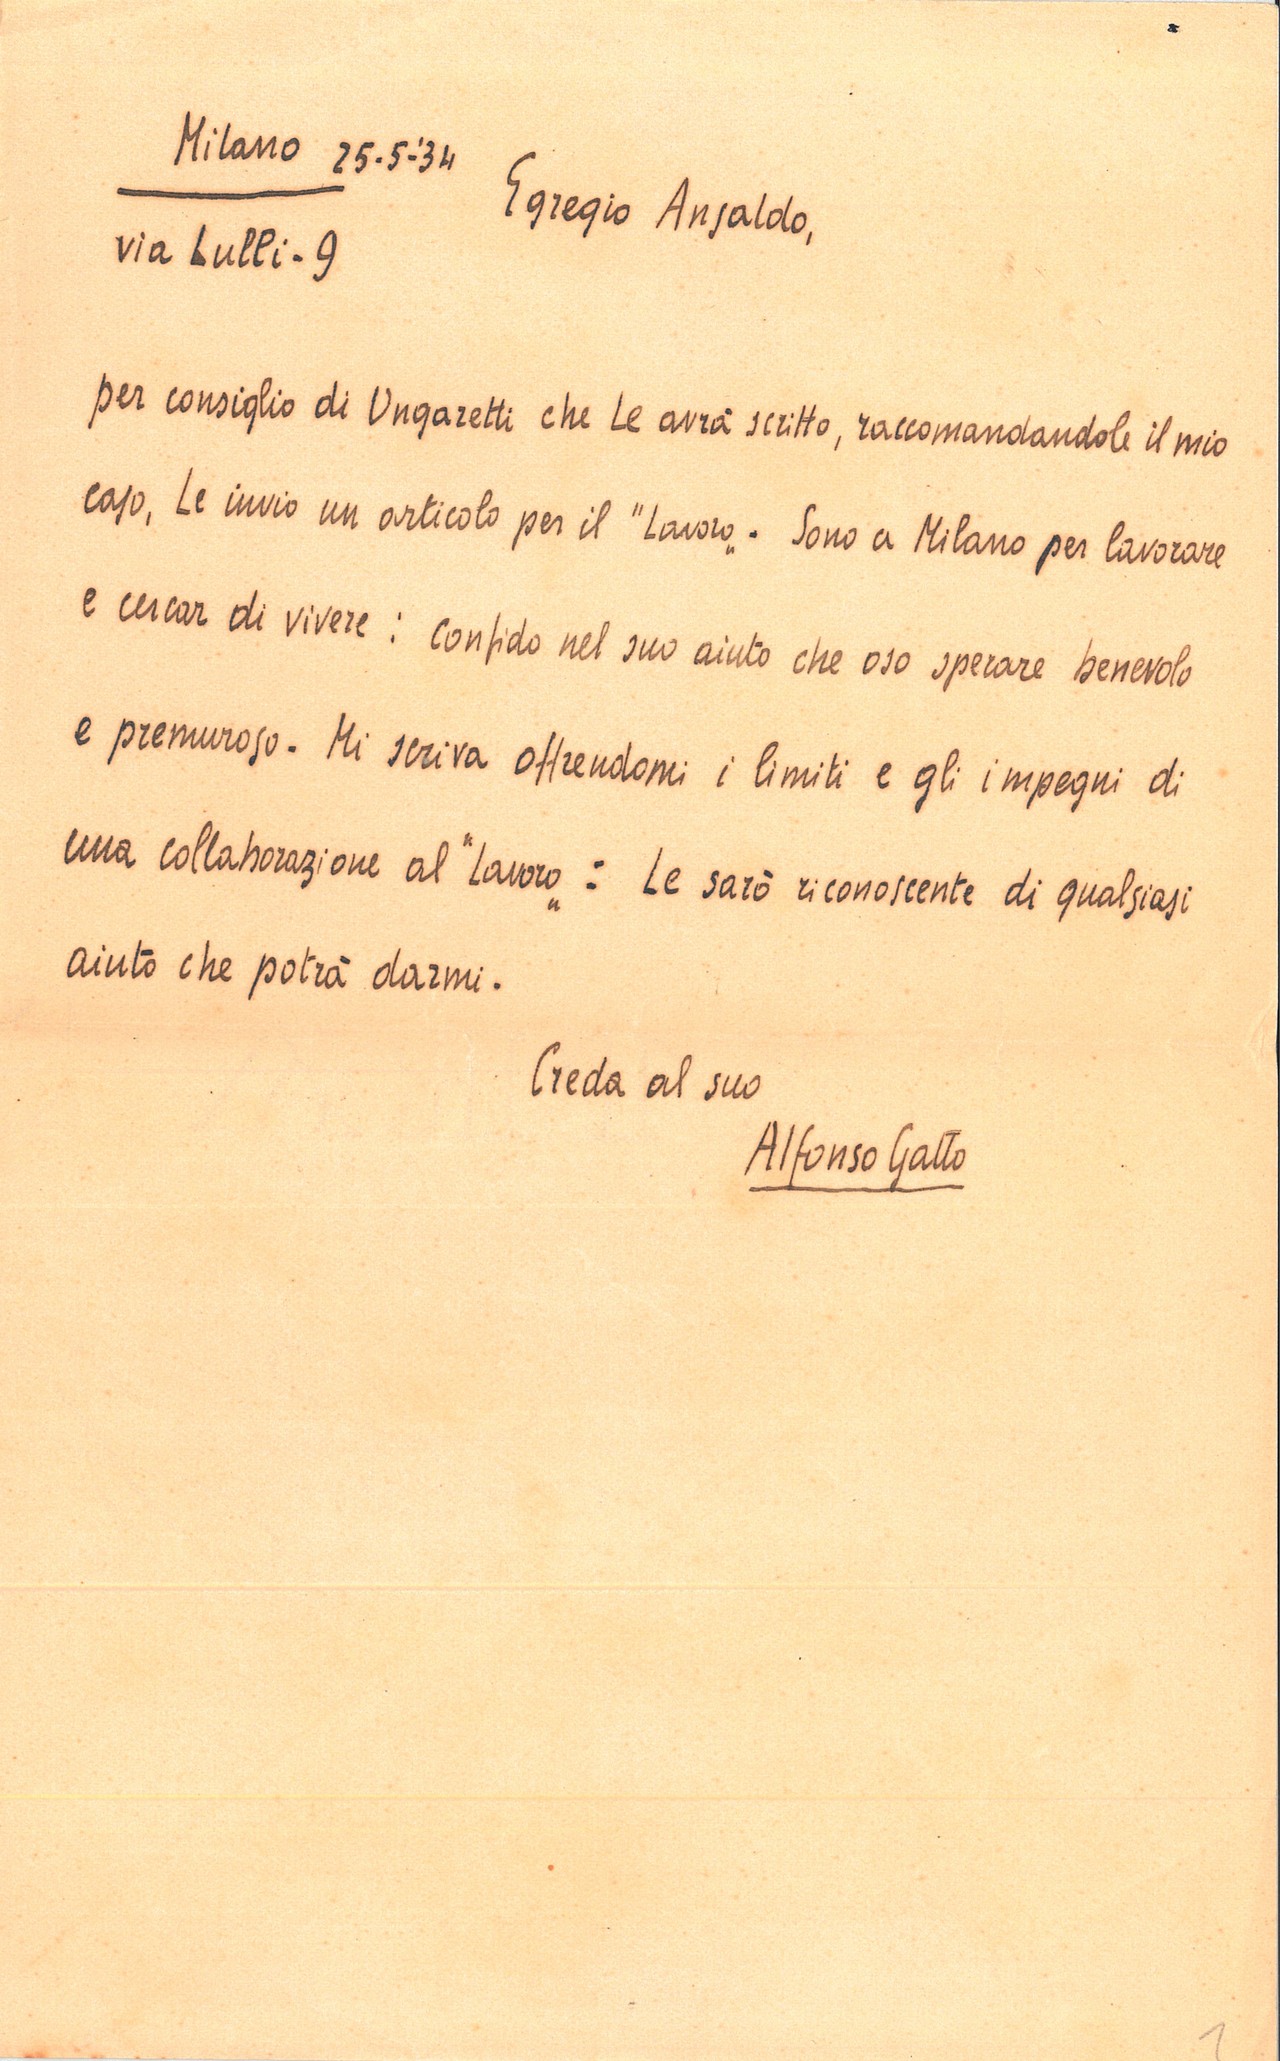 Milano 25-5-'34
via Lulli-9
Egregio Ansaldo,
per consiglio di Ungaretti che Le avrà scritto, raccomandandole il mio
caso, Le invio un articolo per il "Lavoro„. Sono a Milano per lavorare
e cercar di vivere: confido nel suo aiuto che oso sperare benevolo
e premuroso. Mi scriva offrendomi i limiti e gli impegni di
una collaborazione al "Lavoro„: Le sarò riconoscente di qualsiasi
aiuto che potrà darmi.
Creda al suo
Alfonso Gatto
1